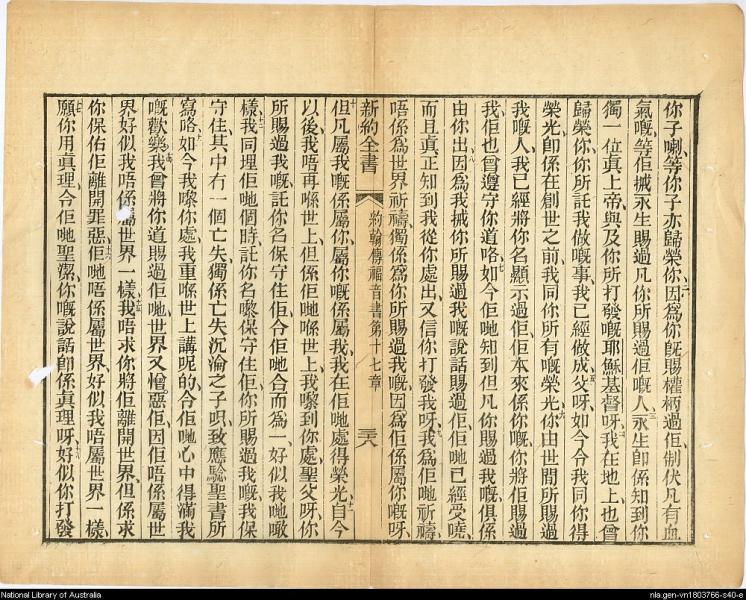 你子喇、等你子亦歸榮你、二因爲你旣賜權柄過佢、制伏凡有血
氣嘅、等佢摵永生賜過凡你所賜過佢嘅人、三永生即係知到你
獨一位眞上帝、與及你所打發嘅耶穌基督呀、四我在地上也曾
歸榮你、你所託我做嘅事、我已經做成、五父呀、如今令我同你得
榮光、即係在創世之前、我同你所有嘅榮光、六你由世間所賜過
我嘅人、我已經將你名顯示過佢、佢本來係你嘅、你將佢賜過
我、佢也曾遵守你道咯、七如今佢哋知到但凡你賜過我嘅、俱係
由你出、八因爲我摵你所賜過我嘅說話賜過佢、佢哋已經受曉、
而且眞正知到我從你處出、又信你打發我呀、九我爲佢哋祈禱、
唔係爲世界祈禱、獨係爲你所賜過我嘅、因爲佢係屬你嘅呀、
新約全書 約翰傳福音書第十七章 三八
十但凡屬我嘅係屬你、屬你嘅係屬我、我在佢哋處得榮光、十一自今
以後我唔再喺世上、但係佢哋喺世上、我嚟到你處、聖父呀、你
所賜過我嘅、託你名保守住佢、合佢哋合而爲一、好似我哋噉
樣、十二我同埋佢哋個時、託你名嚟保守住佢、你所賜過我嘅、我保
守住、其中冇一個亡失、獨係亡失沉淪之子呮、致應驗聖書所
寫咯、十三如今我嚟你處、我重喺世上講呢的、令佢哋心中得滿我
嘅歡樂、十四我曾將你道賜過佢哋、世界又憎惡佢、因佢唔係屬世
界、好似我唔係屬世界一樣、十五我唔求你將佢離開世界、但係求
你保佑佢離開罪惡、十六佢哋唔係屬世界、好似我唔屬世界一樣、
十七願你用眞理、令佢哋聖潔、你嘅說話即係眞理呀、十八好似你打發
National Library of Australia
nla.gen-vn1803766-s40-e